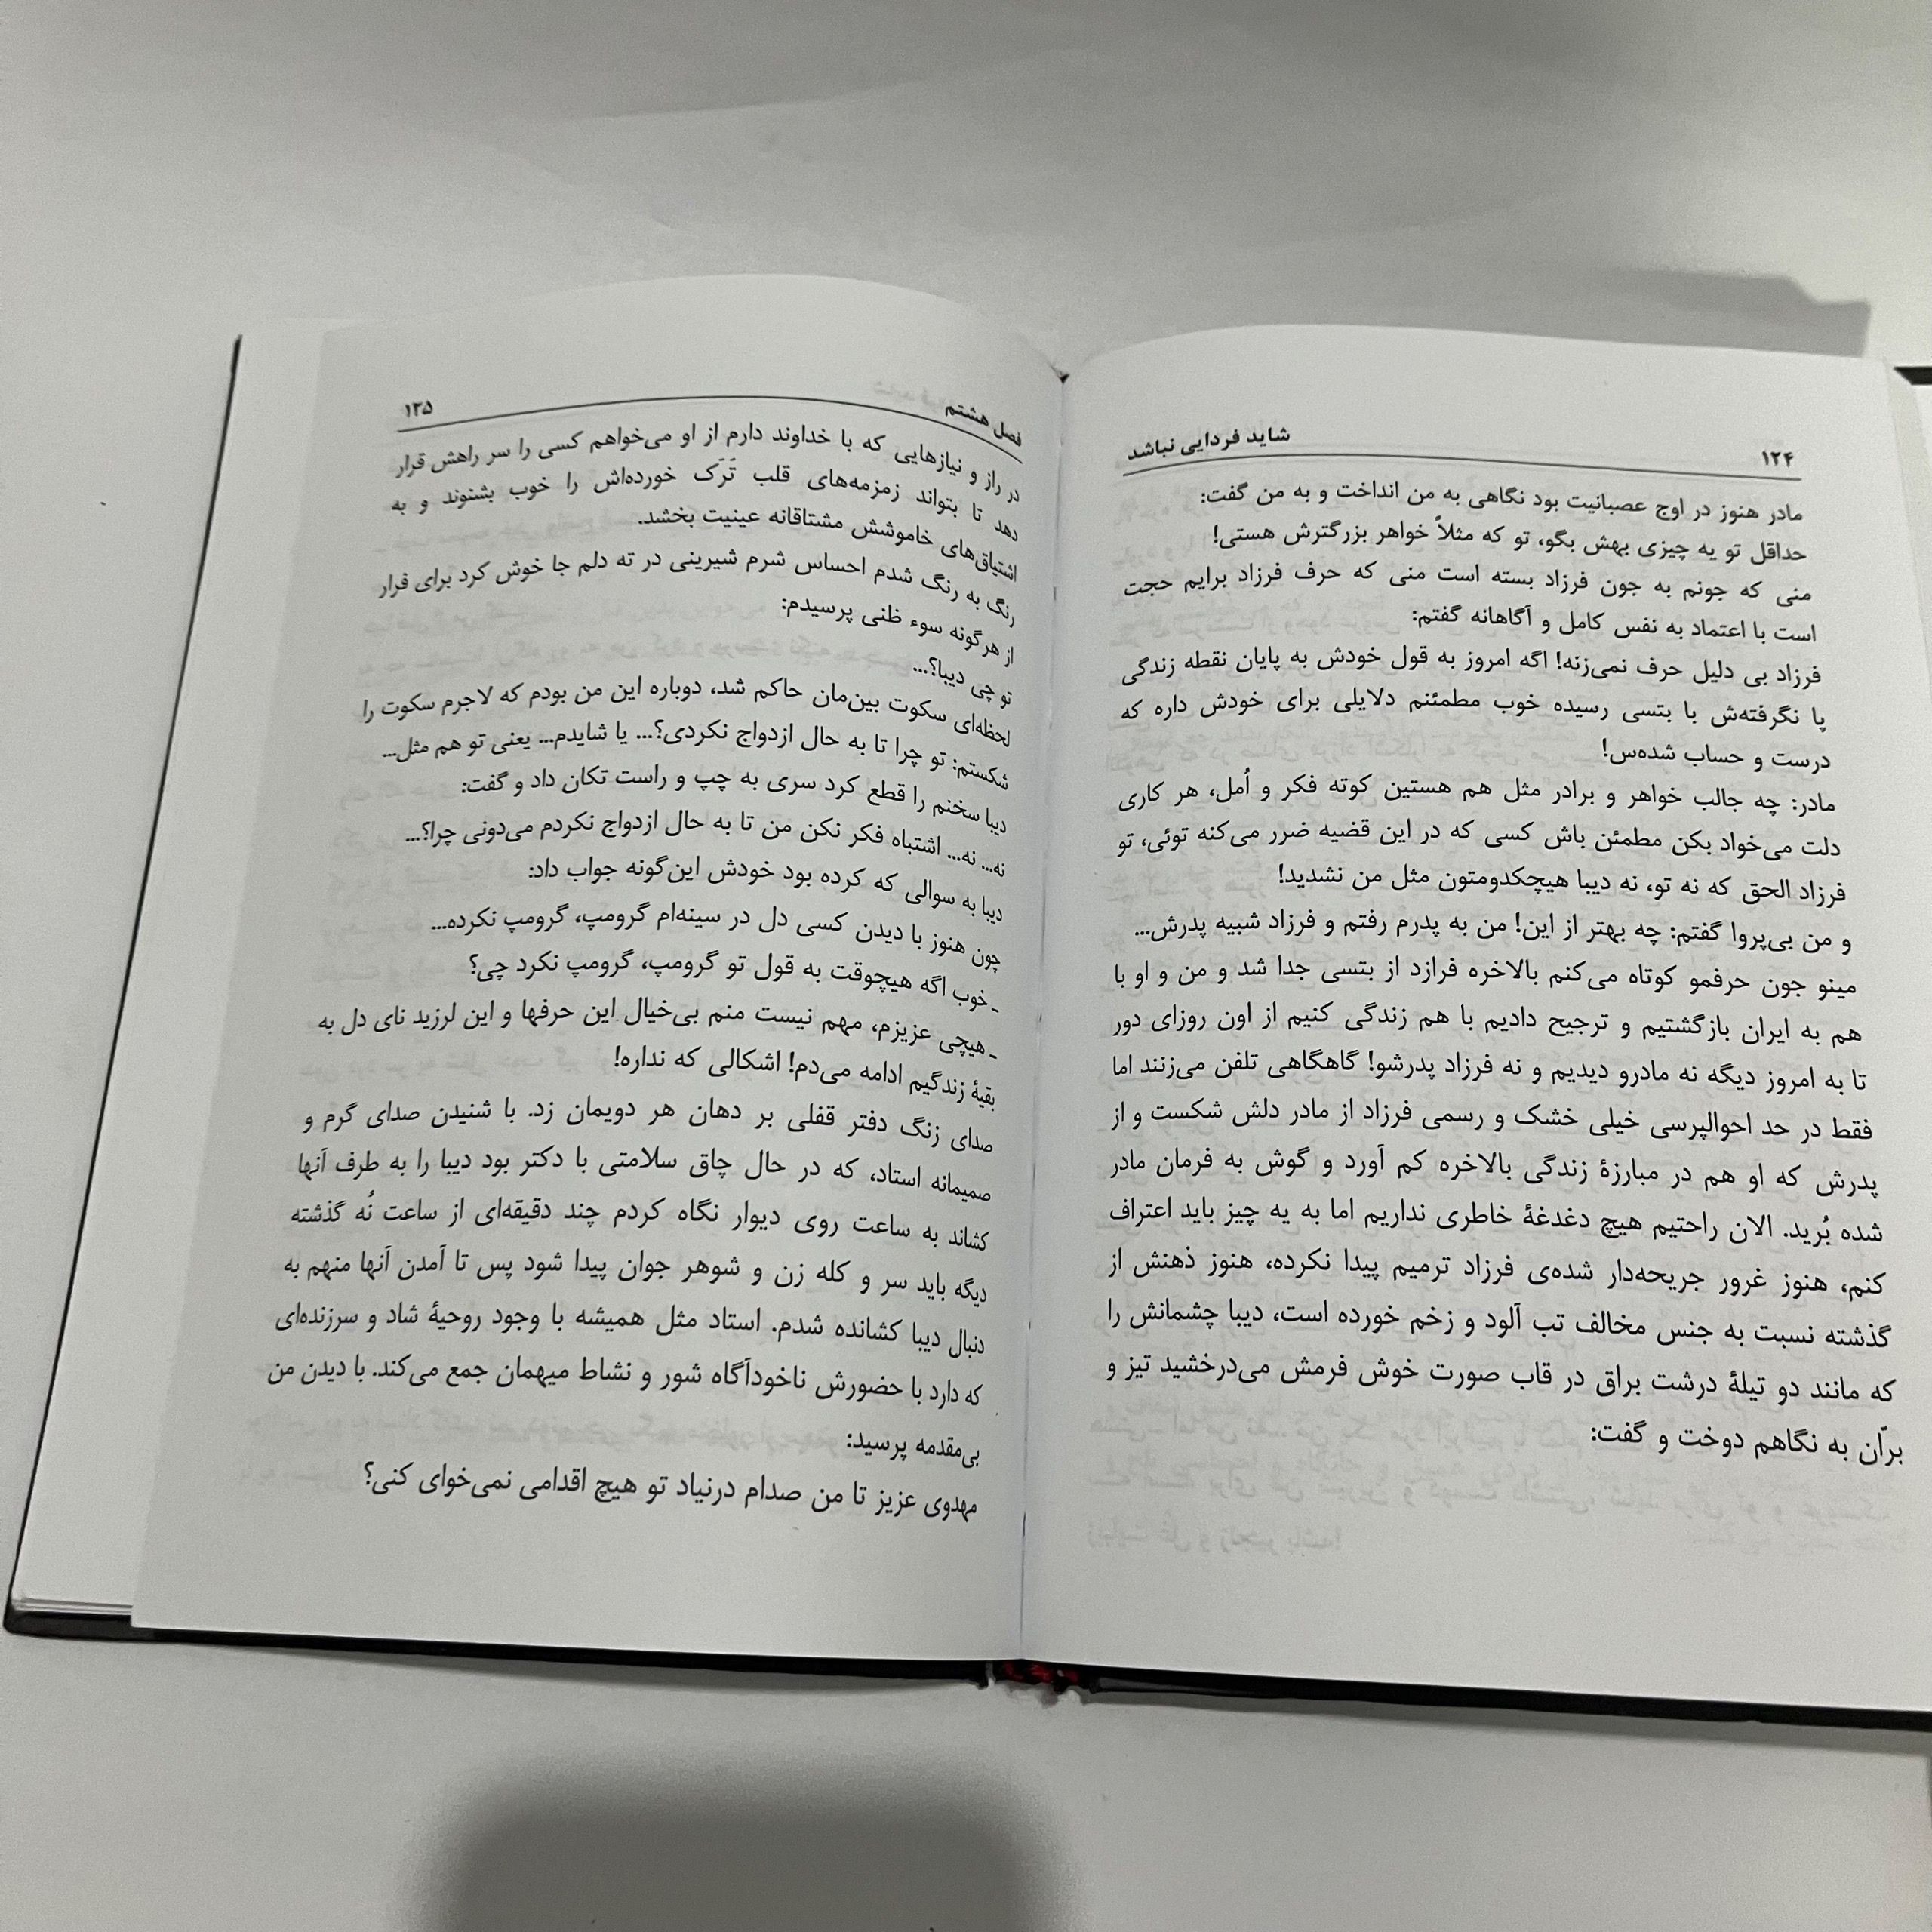 ۱۲۴
شاید فردایی نباشد
مادر هنوز در اوج عصبانیت بود نگاهی به من انداخت و به من گفت:
حداقل تو یه چیزی بهش بگو، تو که مثلاً خواهر بزرگترش هستی!
منی که جونم به جون فرزاد بسته است منی که حرف فرزاد برایم حجت
است با اعتماد به نفس کامل و آگاهانه گفتم:
فرزاد بی دلیل حرف نمی‌زنه! اگه امروز به قول خودش به پایان نقطه زندگی
پا نگرفته‌ش با بتسی رسیده خوب مطمئنم دلایلی برای خودش داره که
درست و حساب شده‌س!
مادر: چه جالب خواهر و برادر مثل هم هستین کوته فکر و اُمل، هر کاری
دلت می‌خواد بکن مطمئن باش کسی که در این قضیه ضرر می‌کنه توئی، تو
فرزاد الحق که نه تو، نه دیبا هیچکدومتون مثل من نشدید!
و من بی‌پروا گفتم: چه بهتر از این! من به پدرم رفتم و فرزاد شبیه پدرش...
مینو جون حرفمو کوتاه می‌کنم بالاخره فرازد از بتسی جدا شد و من و او با
هم به ایران بازگشتیم و ترجیح دادیم با هم زندگی کنیم از اون روزای دور
تا به امروز دیگه نه مادرو دیدیم و نه فرزاد پدرشو! گاهگاهی تلفن می‌زنند اما
فقط در حد احوالپرسی خیلی خشک و رسمی فرزاد از مادر دلش شکست و از
پدرش که او هم در مبارزهٔ زندگی بالاخره کم آورد و گوش به فرمان مادر
شده بُرید. الان راحتیم هیچ دغدغهٔ خاطری نداریم اما به یه چیز باید اعتراف
کنم، هنوز غرور جریحه‌دار شده‌ی فرزاد ترمیم پیدا نکرده، هنوز ذهنش از
گذشته نسبت به جنس مخالف تب آلود و زخم خورده است، دیبا چشمانش را
که مانند دو تیلهٔ درشت براق در قاب صورت خوش فرمش می‌درخشید تیز و
برّان به نگاهم دوخت و گفت:
فصل هشتم
۱۲۵
در راز و نیازهایی که با خداوند دارم از او می‌خواهم کسی را سر راهش قرار
دهد تا بتواند زمزمه‌های قلب تَرَک خورده‌اش را خوب بشنوند و به
اشتیاق‌های خاموشش مشتاقانه عینیت بخشد.
رنگ به رنگ شدم احساس شرم شیرینی در ته دلم جا خوش کرد برای فرار
از هرگونه سوء ظنی پرسیدم:
تو چی دیبا؟...
لحظه‌ای سکوت بین‌مان حاکم شد، دوباره این من بودم که لاجرم سکوت را
شکستم: تو چرا تا به حال ازدواج نکردی؟... یا شایدم... یعنی تو هم مثل...
دیبا سخنم را قطع کرد سری به چپ و راست تکان داد و گفت:
نه... نه... اشتباه فکر نکن من تا به حال ازدواج نکردم می‌دونی چرا؟...
دیبا به سوالی که کرده بود خودش این‌گونه جواب داد:
چون هنوز با دیدن کسی دل در سینه‌ام گرومپ، گرومپ نکرده...
ـ خوب اگه هیچوقت به قول تو گرومپ، گرومپ نکرد چی؟
ـ هیچی عزیزم، مهم نیست منم بی‌خیال این حرفها و این لرزید نای دل به
بقیهٔ زندگیم ادامه می‌دم! اشکالی که نداره!
صدای زنگ دفتر قفلی بر دهان هر دویمان زد. با شنیدن صدای گرم و
صمیمانه استاد، که در حال چاق سلامتی با دکتر بود دیبا را به طرف آنها
کشاند به ساعت روی دیوار نگاه کردم چند دقیقه‌ای از ساعت نُه گذشته
دیگه باید سر و کله زن و شوهر جوان پیدا شود پس تا آمدن آنها منهم به
دنبال دیبا کشانده شدم. استاد مثل همیشه با وجود روحیهٔ شاد و سرزنده‌ای
که دارد با حضورش ناخودآگاه شور و نشاط میهمان جمع می‌کند. با دیدن من
بی‌مقدمه پرسید:
مهدوی عزیز تا من صدام درنیاد تو هیچ اقدامی نمی‌خوای کنی؟